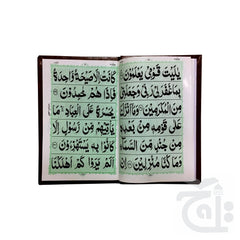 يٰلَيْتَ قَوْمِيْ يَعْلَمُوْنَ
بِمَا غَفَرَلِيْ رَبِّيْ وَجَعَلَنِيْ
مِنَ الْمُكْرَمِيْنَ وَمَا اَنْزَلْنَا
عَلٰى قَوْمِهٖ مِنْ بَعْدِهٖ
مِنْ جُنْدٍ مِّنَ السَّمَآءِ
وَمَا كُنَّا مُنْزِلِيْنَ اِنْ
كَانَتْ اِلَّا صَيْحَةً وَّاحِدَةً
فَاِذَا هُمْ خٰمِدُوْنَ
يٰحَسْرَةً عَلَى الْعِبَادِ مَا
يَاْتِيْهِمْ مِّنْ رَّسُوْلٍ اِلَّا
كَانُوْا بِهٖ يَسْتَهْزِءُوْنَ
اَلَمْ يَرَوْا كَمْ اَهْلَكْنَا